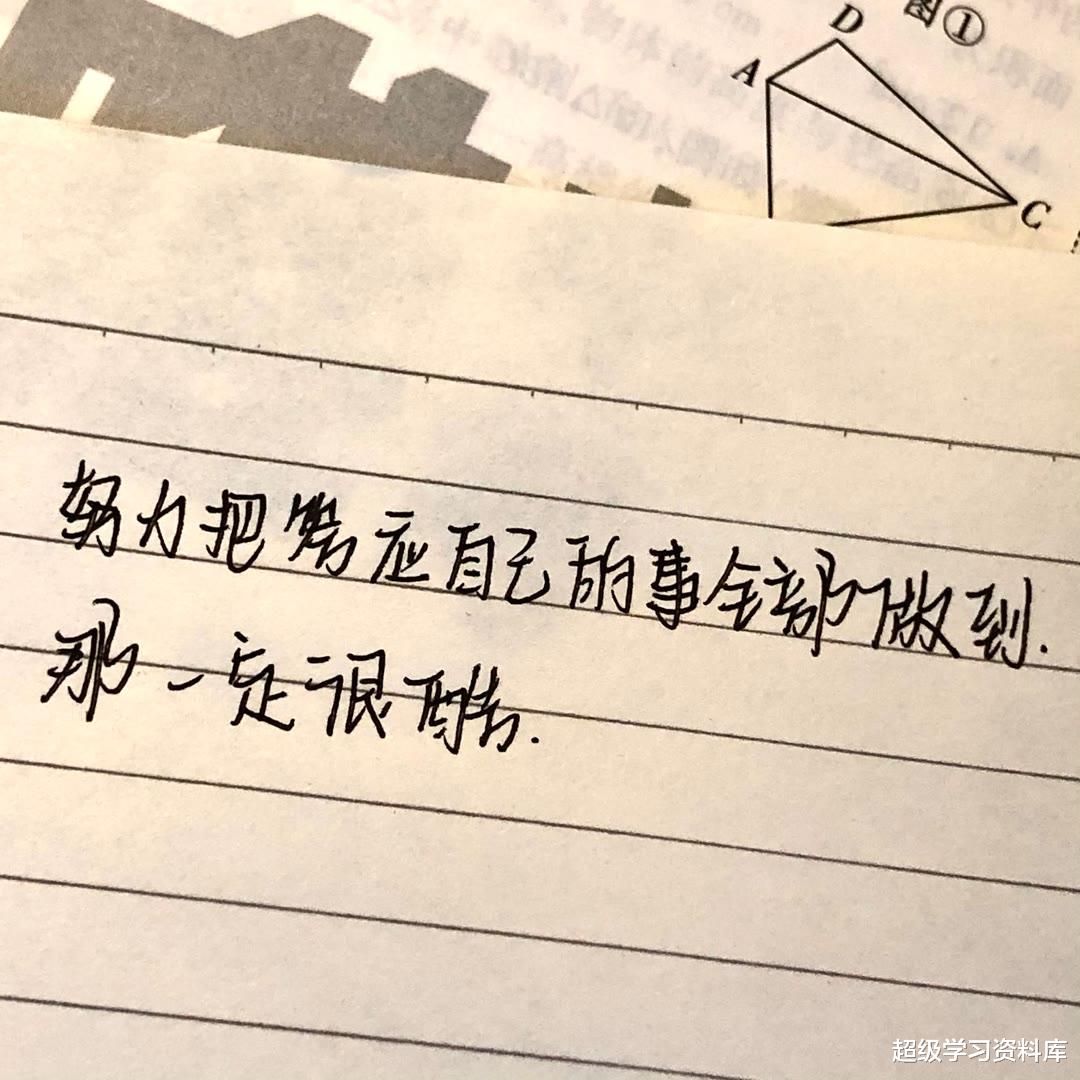 图①
D
A
C
努力把答应自己的事全部做到.
那一定很酷.
超级学习资料库